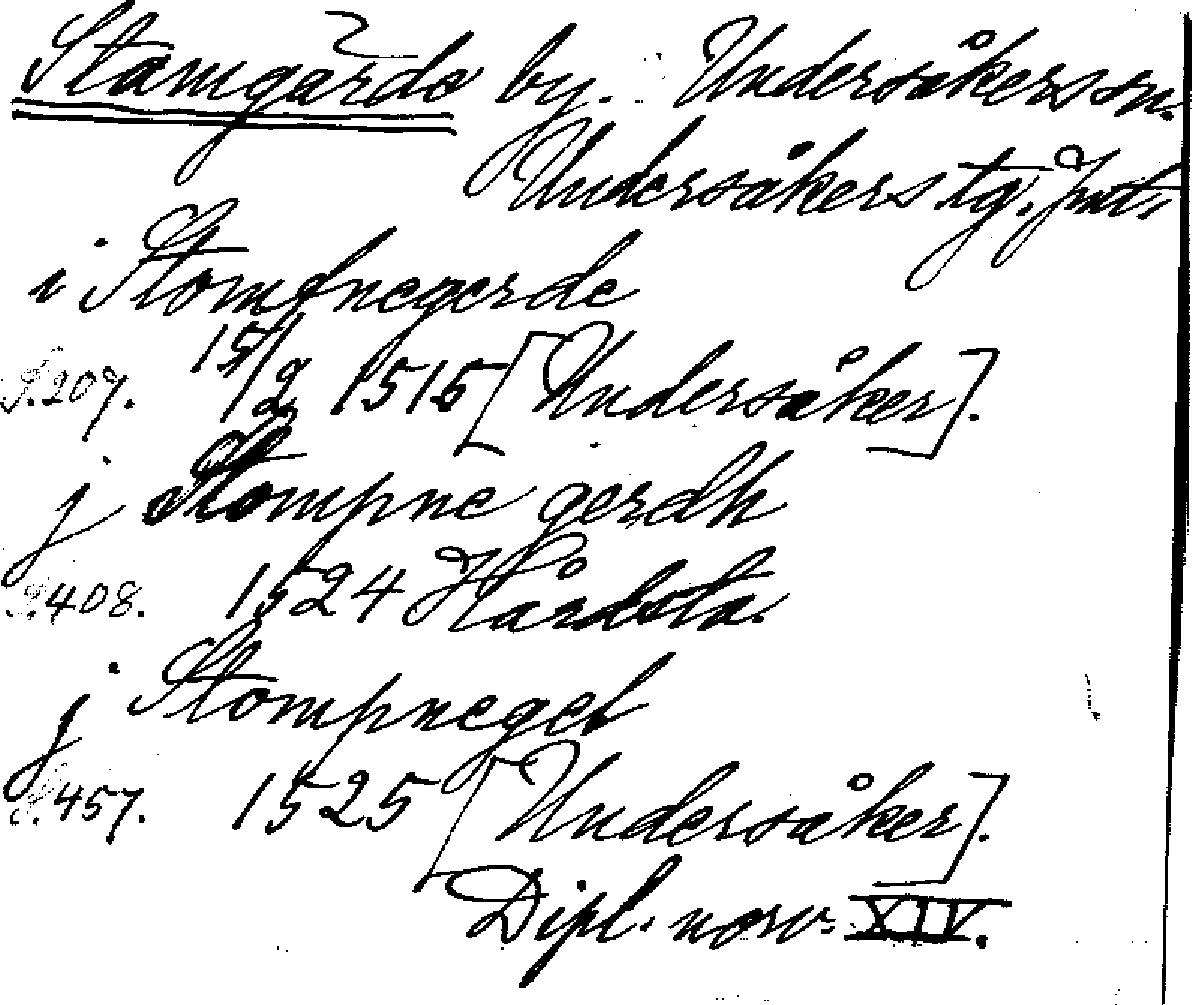 Stamgärde by. Undersåkers sn.
Undersåkers tg. Jmtl.
i Stompnegerde
S. 207. 15/2 1515 [Undersåker].
j Stompne gerdh
S. 408. 1524 Hårdsta.
j Stompnegel
S. 457. 1525 [Undersåker].
Dipl. norv. XIV.